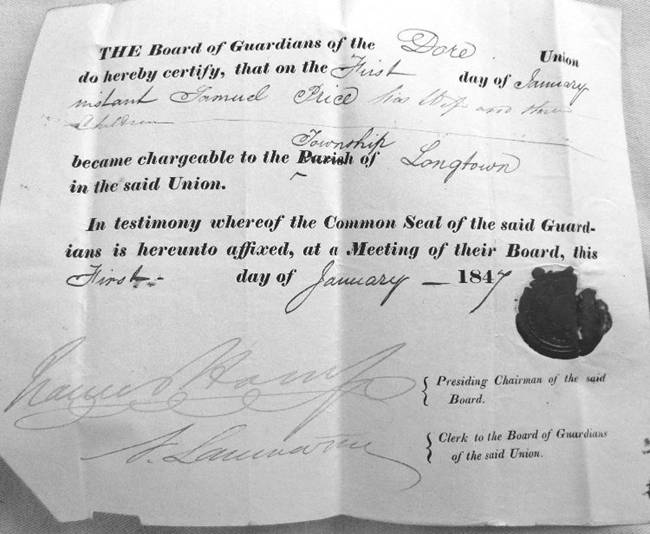 THE Board of Guardians of the Dore Union
do hereby certify, that on the First day of January
instant Samuel Price his Wife and three
Children
Township
became chargeable to the Parish of Longtown
in the said Union.
In testimony whereof the Common Seal of the said Guard-
ians is hereunto affixed, at a Meeting of their Board, this
First day of January 1847
Presiding Chairman of the said
Board.
Clerk to the Board of Guardians
of the said Union.